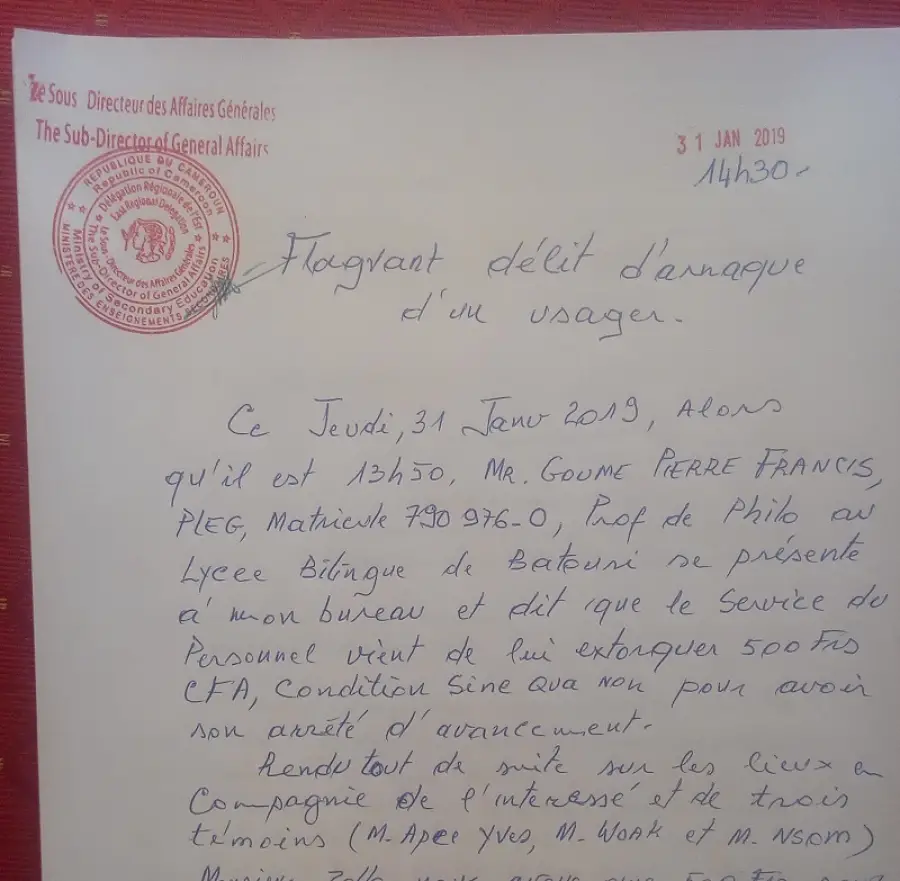 Le Sous Directeur des Affaires Générales
The Sub-Director of General Affairs
REPUBLIQUE DU CAMEROUN
Republic of Cameroon
Délégation Régionale de l'Est
East Regional Delegation
Le Sous - Directeur des Affaires Générales
The Sub-Director of General Affairs
Ministry of Secondary Education
MINISTERE DES ENSEIGNEMENTS SECONDAIRES
31 JAN 2019
14h30-
Flagrant délit d'arnaque
d'un usager.
Ce Jeudi, 31 Janv 2019, Alors
qu'il est 13h50, MR. GOUME PIERRE FRANCIS,
PLEG, Matricule 790 976-O, Prof de Philo au
Lycee Bilingue de Batouri se présente
à mon bureau et dit que le Service du
Personnel vient de lui extorquer 500 Frs
CFA, Condition Sine Qua Non pour avoir
son arrêté d'avancement.
Rendu tout de suite sur les lieux en
Compagnie de l'interessé et de trois
témoins (M. Apee Yves, M. WOAK et M. NSOM)
Monsieur